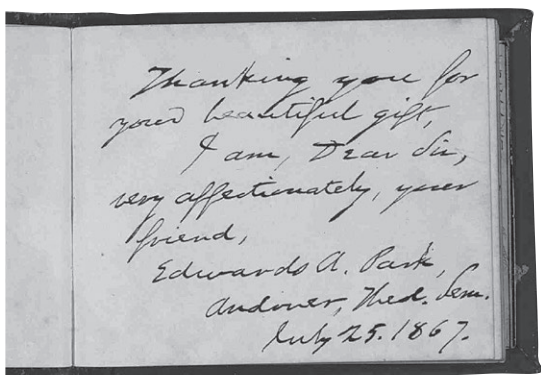 Thanking you for
your beautiful gift,
I am, Dear Sir,
very affectionately, your
friend,
Edwards A. Park,
Andover, Theol. Sem.
July 25. 1867.